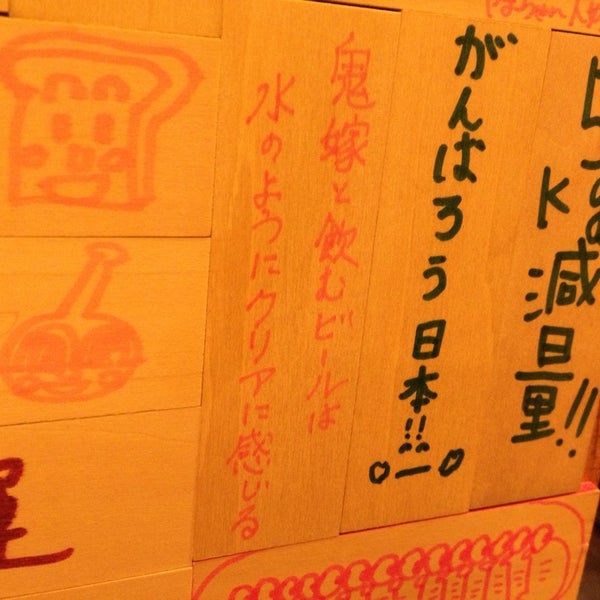 K減量!!
がんばろう日本!!
鬼嫁と飲むビールは
水のようにクリアに感じる